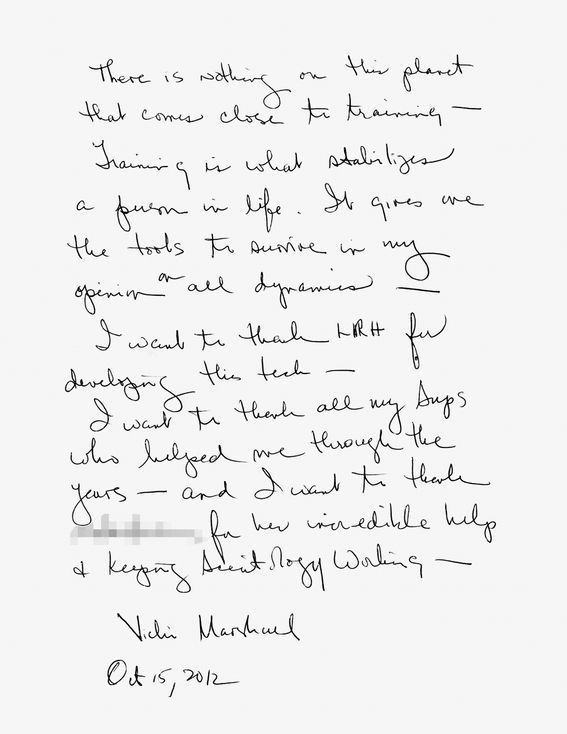 There is nothing on this planet
that comes close to training —
Training is what stabilizes
a person in life. It gives me
the tools to survive in my
opinion on all dynamics —
I want to thank LRH for
developing this tech —
I want to thank all my Sups
who helped me through the
years — and I want to thank
for her incredible help
& keeping Scientology Working —
Vicki Marshall
Oct 15, 2012